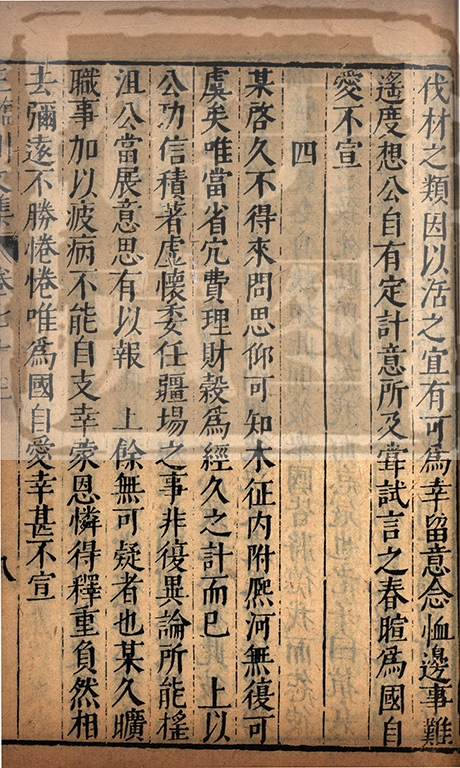 伐材之類因以活之宜有可爲幸留意念恤邊事難
遙度想公自有定計意所及甞試言之春暄爲國自
愛不宣
四
某啓久不得來問思仰可知木征内附熈河無復可
虞矣唯當省宂費理財穀爲經久之計而已　上以
公功信積著虛懷委任疆場之事非復異論所能搖
沮公當展意思有以報　上餘無可疑者也某久曠
職事加以疲病不能自支幸蒙恩憐得釋重負然相
去彌逺不勝惓惓唯爲國自愛幸甚不宣